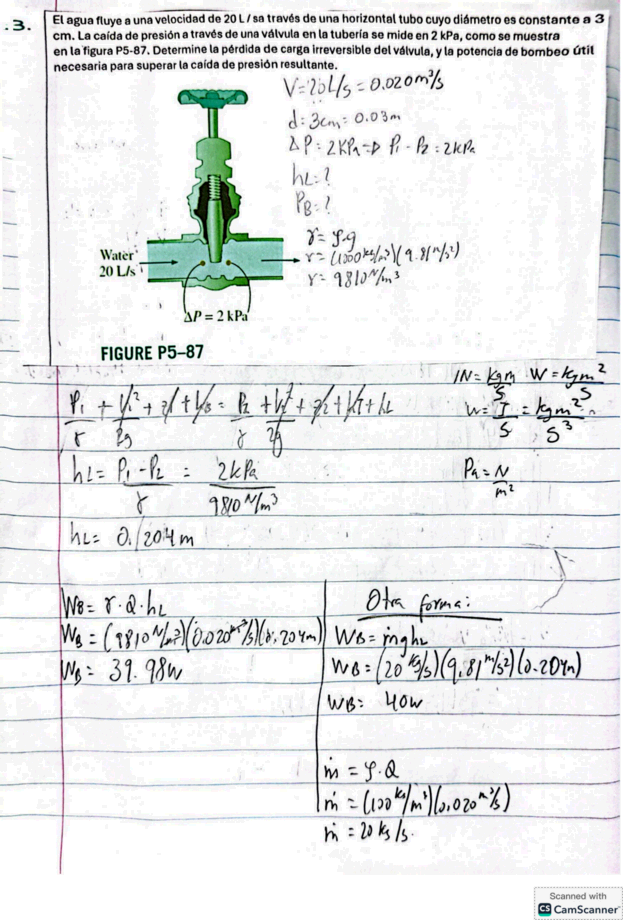 .3.
El agua fluye a una velocidad de 20 L / sa través de una horizontal tubo cuyo diámetro es constante a 3
cm. La caída de presión a través de una válvula en la tubería se mide en 2 kPa, como se muestra
en la figura P5-87. Determine la pérdida de carga irreversible del válvula, y la potencia de bombeo útil
necesaria para superar la caída de presión resultante.
V=20L/s = 0.020m³/s
d=3cm=0.03m
ΔP=2KPa=D P₁-P₂=2kPa
hL=?
PB=?
γ=ρ.g
γ=(1000kg/m³)(9.81m/s²)
γ=9810N/m³
Water
20 L/s
ΔP = 2 kPa
FIGURE P5–87
1N=kgm/s W=kgm²/s
W=J/s=kgm²/s³
P₁/γ + V₁²/2g + z₁ + hB = P₂/γ + V₂²/2g + z₂ + hT + hL
hL= P₁-P₂/γ = 2kPa/9810N/m³
Pa=N/m²
hL= 0.204m
WB= γ.Q.hL
WB=(9810N/m³)(0.020m³/s)(0.204m)
WB= 39.98w
Otra forma:
WB=ṁghL
WB=(20kg/s)(9.81m/s²)(0.204m)
WB= 40w
ṁ = ρ.Q
ṁ = (100kg/m³)(0,020m³/s)
ṁ = 20 kg/s.
Scanned with
CS CamScanner